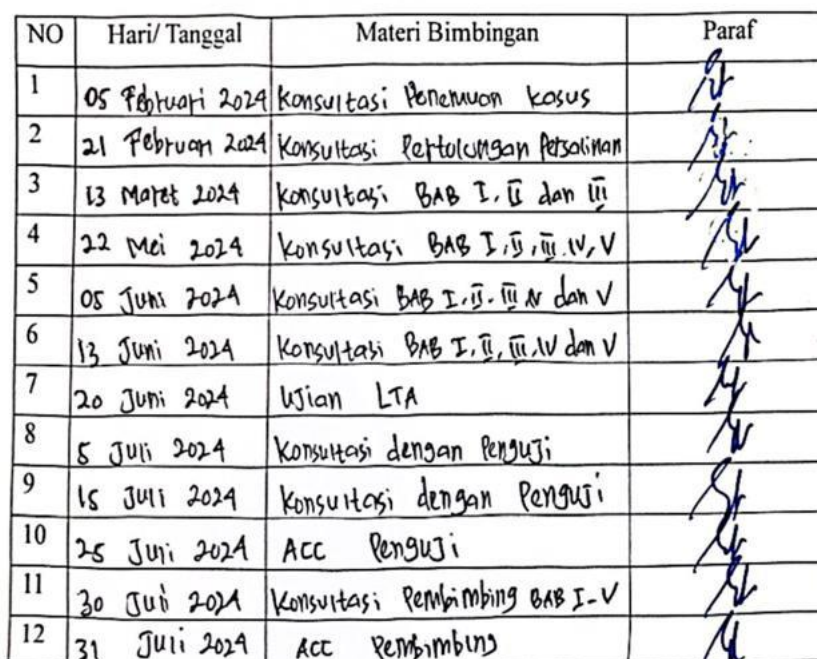 NO Hari/ Tanggal Materi Bimbingan Paraf
1 05 Februari 2024 Konsultasi Penemuan kasus
2 21 Februari 2024 Konsultasi Pertolongan Persalinan
3 13 Maret 2024 Konsultasi BAB I, II dan III
4 22 Mei 2024 Konsultasi BAB I, II, III, IV, V
5 05 Juni 2024 Konsultasi BAB I, II, III, IV dan V
6 13 Juni 2024 Konsultasi BAB I, II, III, IV dan V
7 20 Juni 2024 Ujian LTA
8 5 Juli 2024 Konsultasi dengan Penguji
9 15 Juli 2024 Konsultasi dengan Penguji
10 25 Juli 2024 ACC Penguji
11 30 Juli 2024 Konsultasi Pembimbing BAB I-V
12 31 Juli 2024 ACC Pembimbing